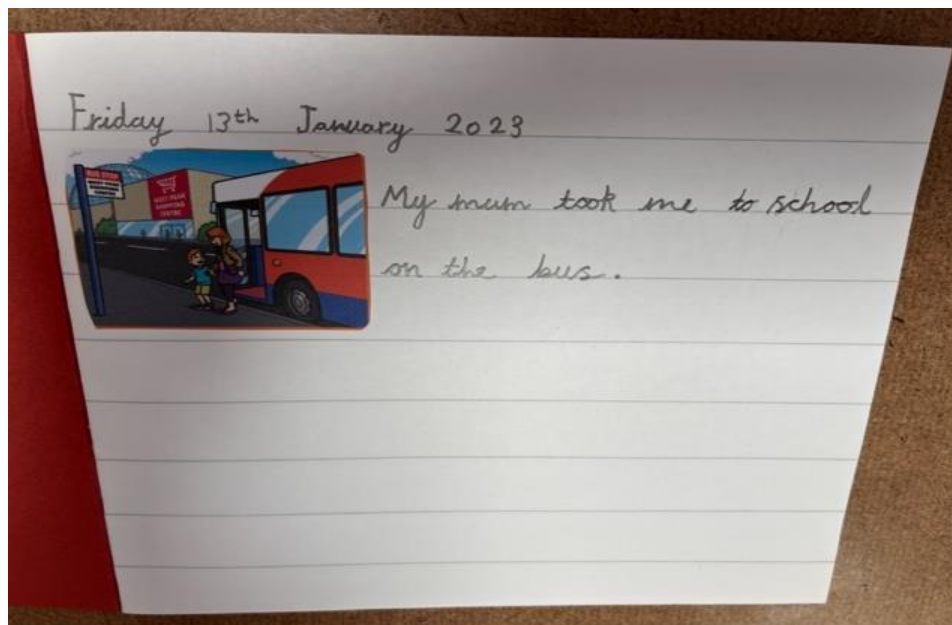 Friday 13th January 2023
BUS STOP
WEST PARK
SHOPPING
CENTRE
My mum took me to school
on the bus.